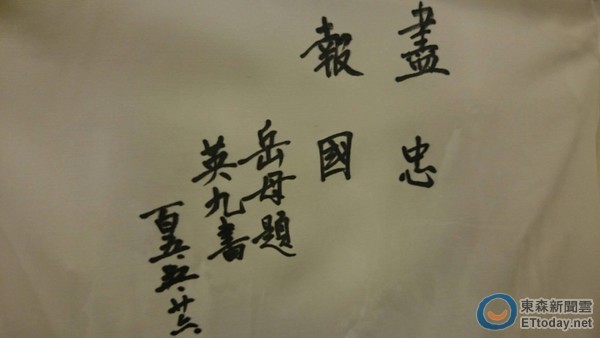 盡忠
報國
岳母題
英九書
百五.五.廿六
東森新聞雲
ETtoday.net